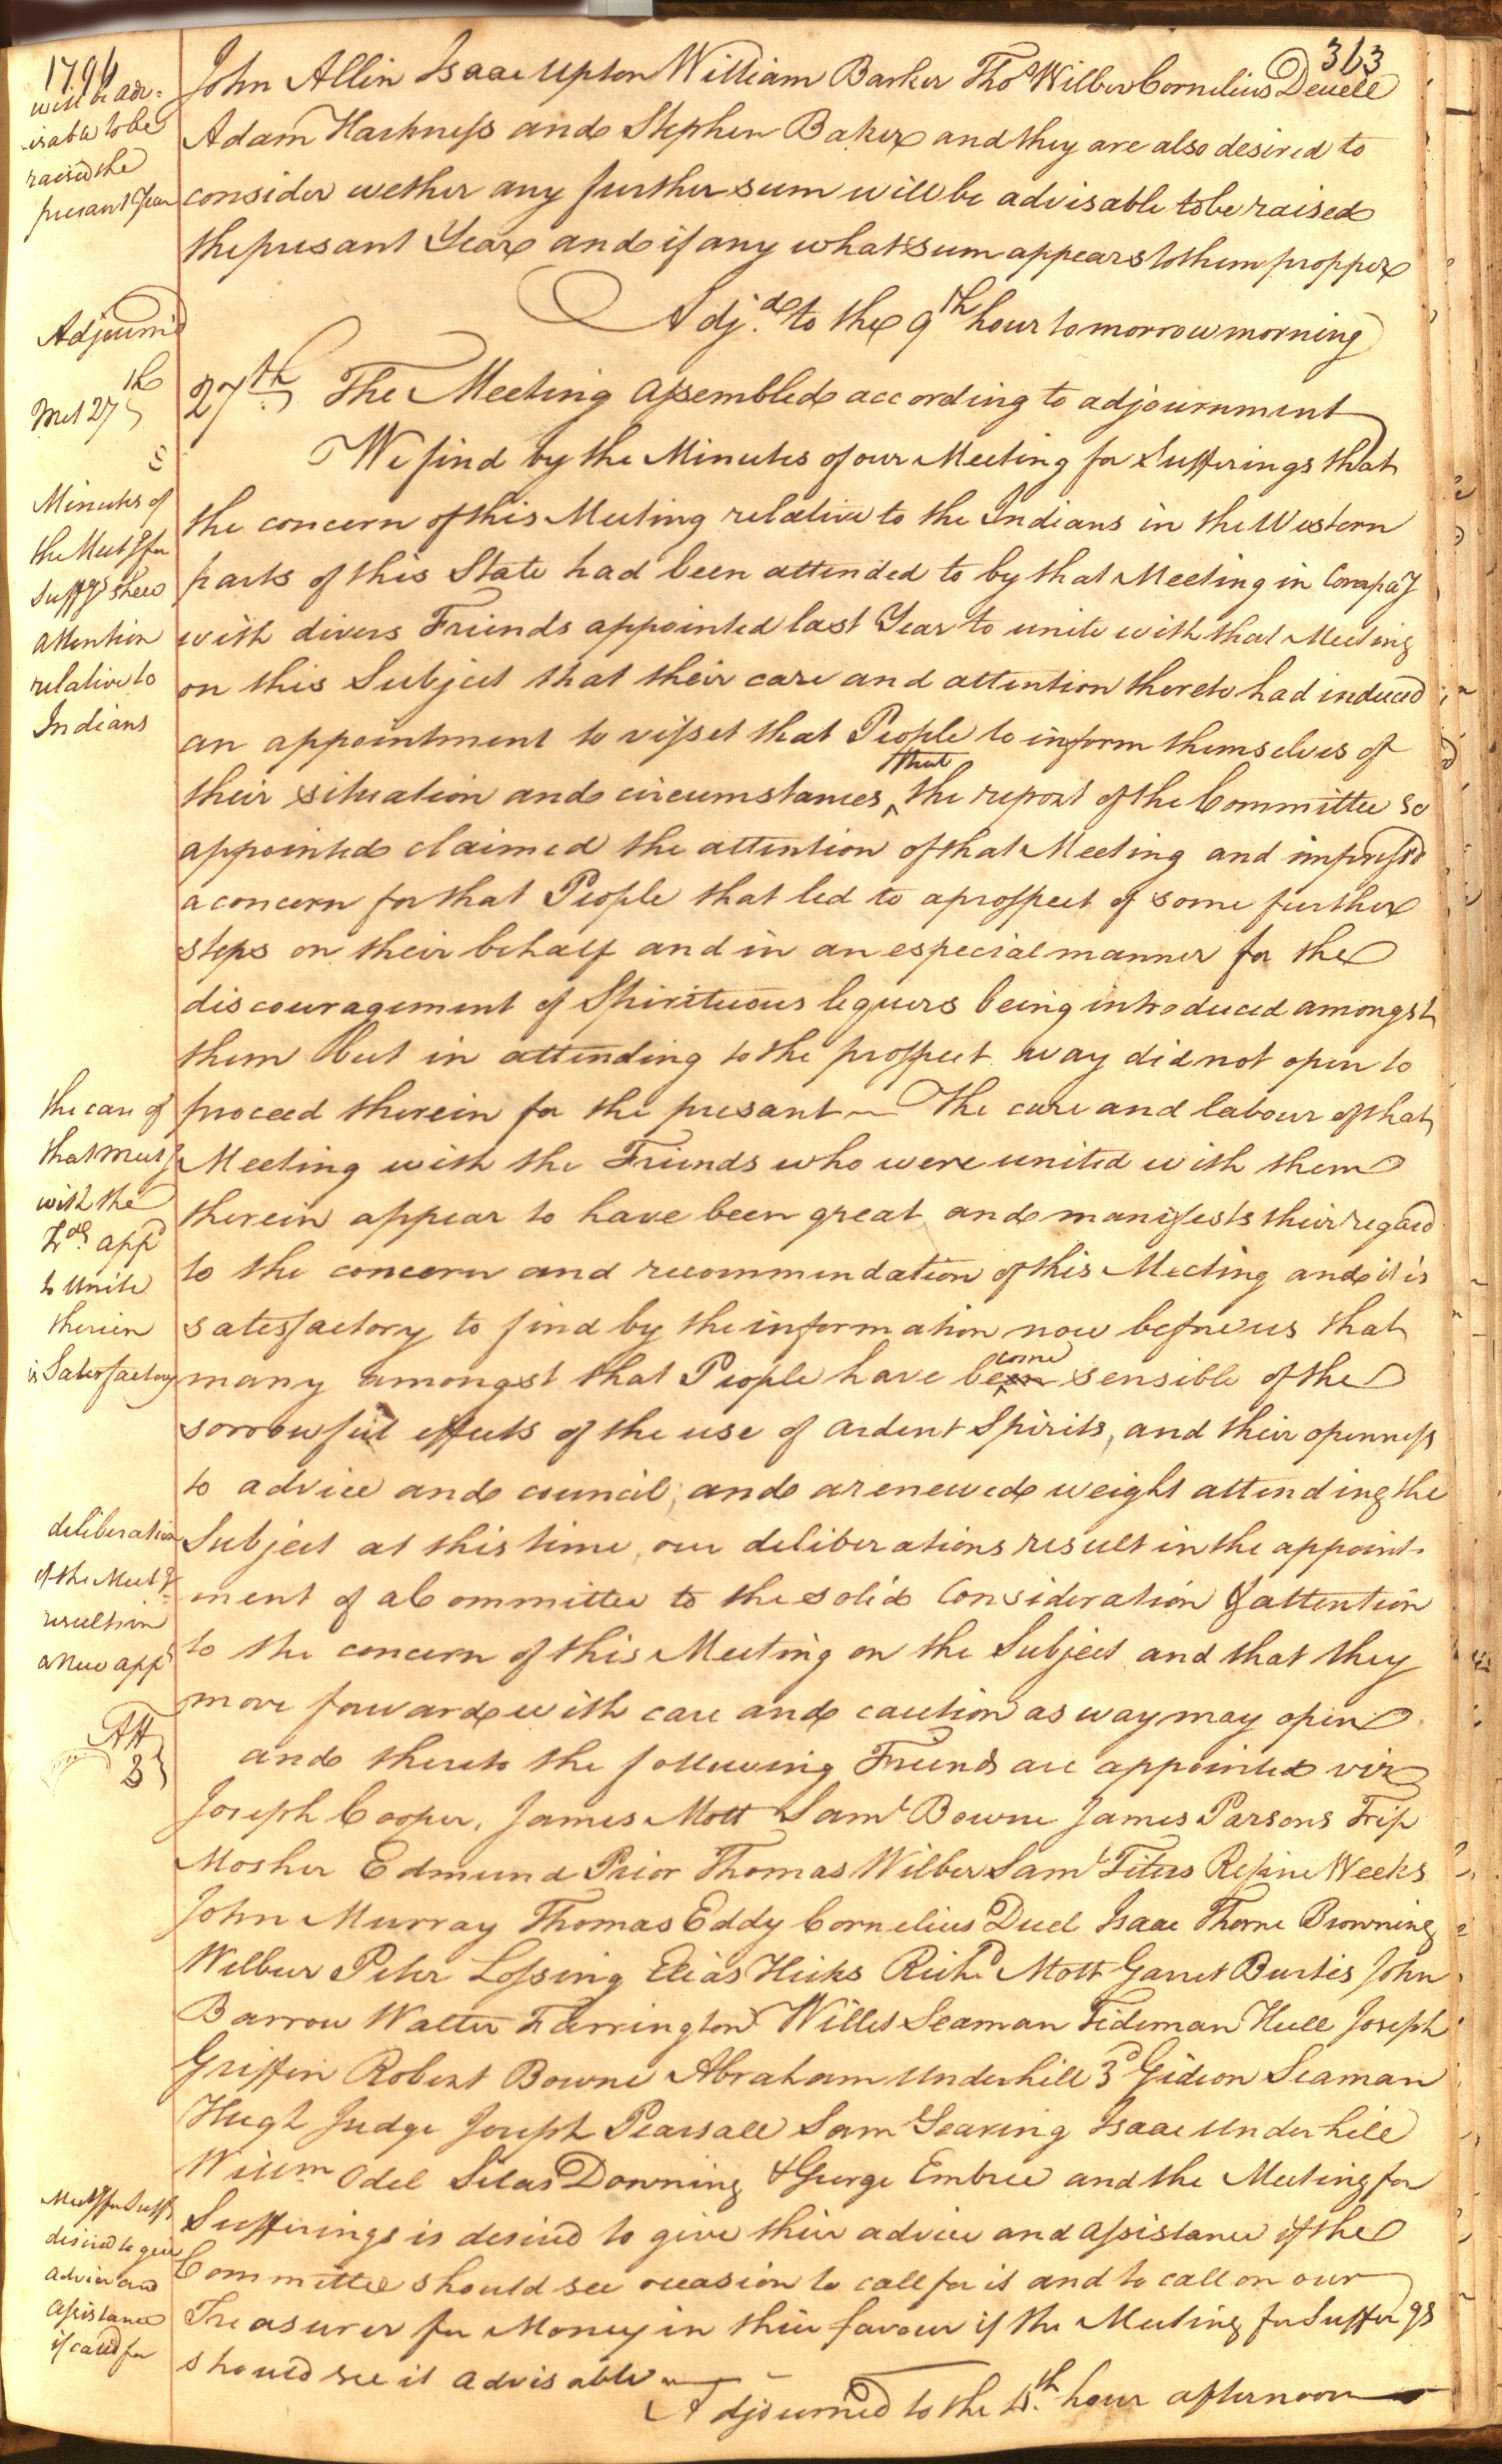 313
1796
will be adv=
isable to be
raised the
presant Year
John Allin Isaac Upton William Barker Thos Wilber Cornelius Deuell
Adam Harkness and Stephen Baker and they are also desired to
consider wether any further sum will be advisable to be raised
the presant Year and if any what sum appears to them propper
Adjd. to the 9th hour tomorrow morning
Adjourn'd
Met 27th
27th. The Meeting assembled according to adjournment
We find by the Minutes of our Meeting for Sufferings that
Minutes of
the Meetg for
Suffgs shew
attention
relative to
Indians
the concern of this Meeting relative to the Indians in the Western
parts of this State had been attended to by that Meeting in Compay
with divers Friends appointed last Year to unite with that Meeting
on this Subject that their care and attention thereto had induced
an appointment to visset that People to inform themselves of
their situation and circumstances ^that the report of the Committee so
appointed claimed the attention of that Meeting and impress'd
a concern for that People that led to a prospect of some further
steps on their behalf and in an especial manner for the
discouragement of Spirituous lequers being introduced amongst
them but in attending to the prospect way did not open to
proceed therein for the presant — The care and labour of that
the care of
that Meetg
with the
Fds. appd
to Unite
therein
is Satesfactory
Meeting with the Friends who were united with them
therein appear to have been great and manifests their regard
to the concern and recommendation of this Meeting and it is
satesfactory to find by the information now before us that
many amongst that People have become sensible of the
sorrowful effects of the use of ardent Spirits, and their openness
to advice and council; and a renewed weight attending the
deliberation
of the Meetg
result in
a new appt
Subject at this time, our deliberations result in the appoint-
ment of a Committee to the solid Consideration & attention
to the concern of this Meeting on the Subject and that they
move forward with care and caution as way may open
and thereto the following Friends are appointed viz
Joseph Cooper, James Mott Saml Bowne James Parsons Trip
Mosher Edmund Prior Thomas Wilber Saml Titus Refine Weeks
John Murray Thomas Eddy Cornelius Duel Isaac Thorne Browning
Wilbur Peter Lossing Elias Hicks Richd Mott Garret Burtis John
Barrow Walter Farrington Willet Seaman Tideman Hull Joseph
Griffin Robert Bowne Abraham Underhill 3d Gideon Seaman
Hugh Judge Joseph Pearsall Sam Searing Isaac Underhill
Willm Odel Silas Downing & George Embree and the Meeting for
Meetg for Suffgs
desired to give
advice and
assistance
if called for
Sufferings is desired to give their advice and assistance if the
Committee should see occasion to call for it and to call on our
Treasurer for Money in their favour if the Meeting for Sufferings
should see it advisable —
Adjourned to the 4th. hour afternoon